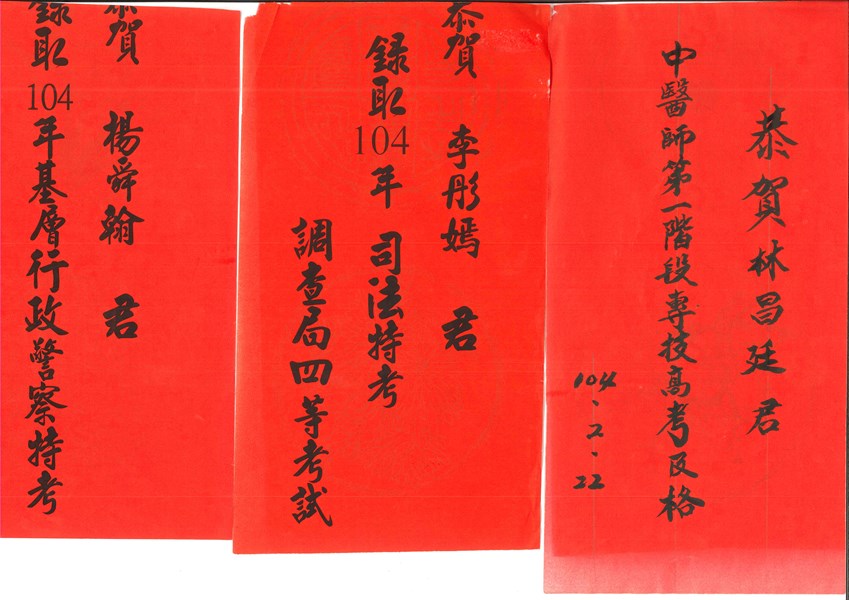 恭賀林昌廷君
中醫師第一階段專技高考及格
104、2、22
恭賀 李彤嫣 君
錄取104年 司法特考
調查局四等考試
恭賀 楊舜翰 君
錄取104年基層行政警察特考